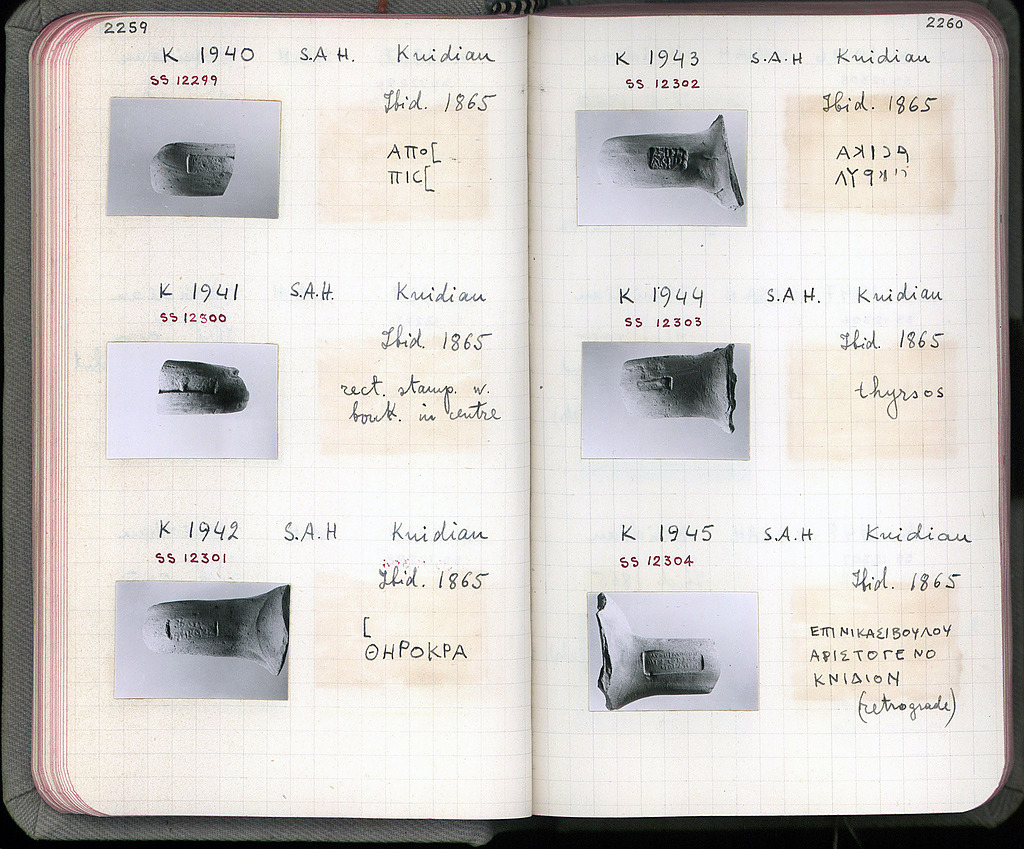 2259
K 1940 S.A.H. Knidian
SS 12299
Ibid. 1865
ΑΠΟ[
ΠΙC[
K 1941 S.A.H. Knidian
SS 12300
Ibid. 1865
rect. stamp. w.
bouk. in centre
K 1942 S.A.H Knidian
SS 12301
Ibid. 1865
[
ΘΗΡΟΚΡΑ
2260
K 1943 S.A.H Knidian
SS 12302
Ibid. 1865
K 1944 S.A H. Knidian
SS 12303
Ibid. 1865
thyrsos
K 1945 S.A.H Knidian
SS 12304
Ibid. 1865
ΕΠΙΝΙΚΑΣΙΒΟΥΛΟΥ
ΑΡΙΣΤΟΓΕΝΟ
ΚΝΙΔΙΟΝ
(retrograde)